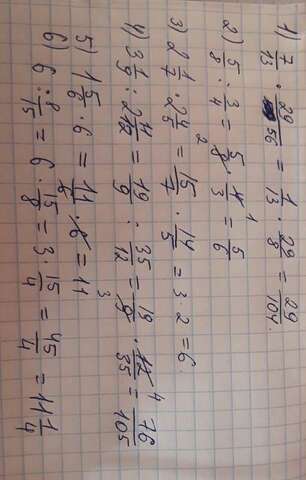 1) 7/13 · 29/56 = 1/13 · 29/8 = 29/104.
2) 5/8 : 3/4 = 5/8 · 4/3 = 5/6
3) 2 1/7 · 2 4/5 = 15/7 · 14/5 = 3 · 2 = 6.
4) 3 1/9 : 2 11/12 = 19/9 : 35/12 = 19/9 · 12/35 = 76/105
5) 1 5/6 · 6 = 11/6 · 6 = 11
6) 6 : 8/15 = 6 · 15/8 = 3 · 15/4 = 45/4 = 11 1/4